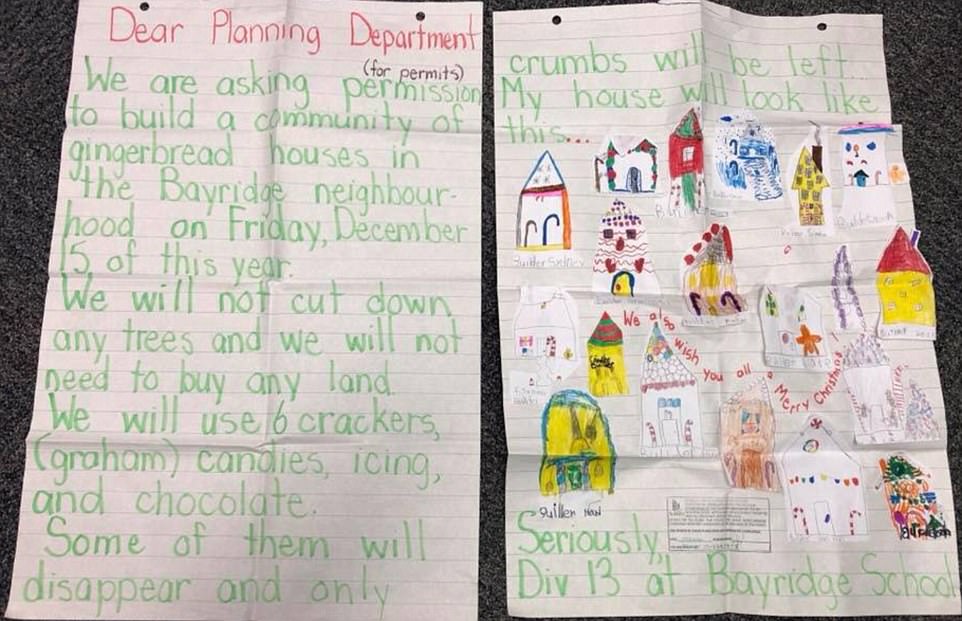 Dear Planning Department
(for permits)
We are asking permission
to build a community of
gingerbread houses in
the Bayridge neighbour-
hood on Friday, December
15 of this year.
We will not cut down
any trees and we will not
need to buy any land.
We will use 6 crackers,
(graham) candies, icing,
and chocolate.
Some of them will
disappear and only
crumbs will be left.
My house will look like
this...
Builder Sydney
We also
wish
you all
a
Merry Christmas
Seriously,
Div 13 at Bayridge School